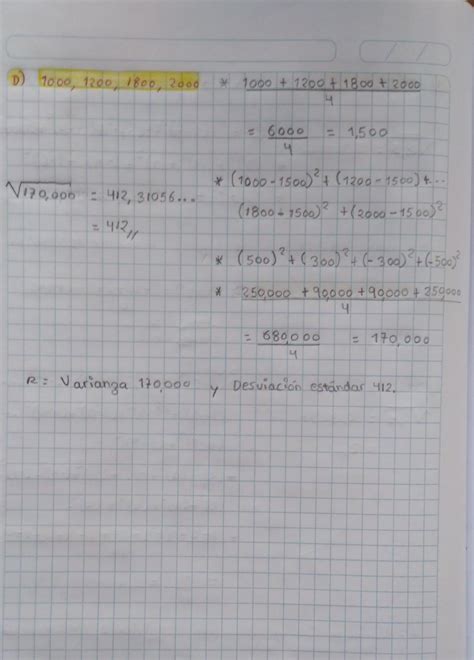 D) 1000, 1200, 1800, 2000 * 1000 + 1200 + 1800 + 2000
4
= 6000 = 1,500
4
* (1000 - 1500)² + (1200 - 1500) + ...
√170,000 = 412,31056...
(1800 + 1500)² + (2000 - 1500)²
= 412,,
* (500)² + (300)² + (-300)² + (-500)²
* 250,000 + 90,000 + 90,000 + 250,000
4
= 680,000 = 170,000
4
R = Varianza 170,000 y Desviación estándar 412.